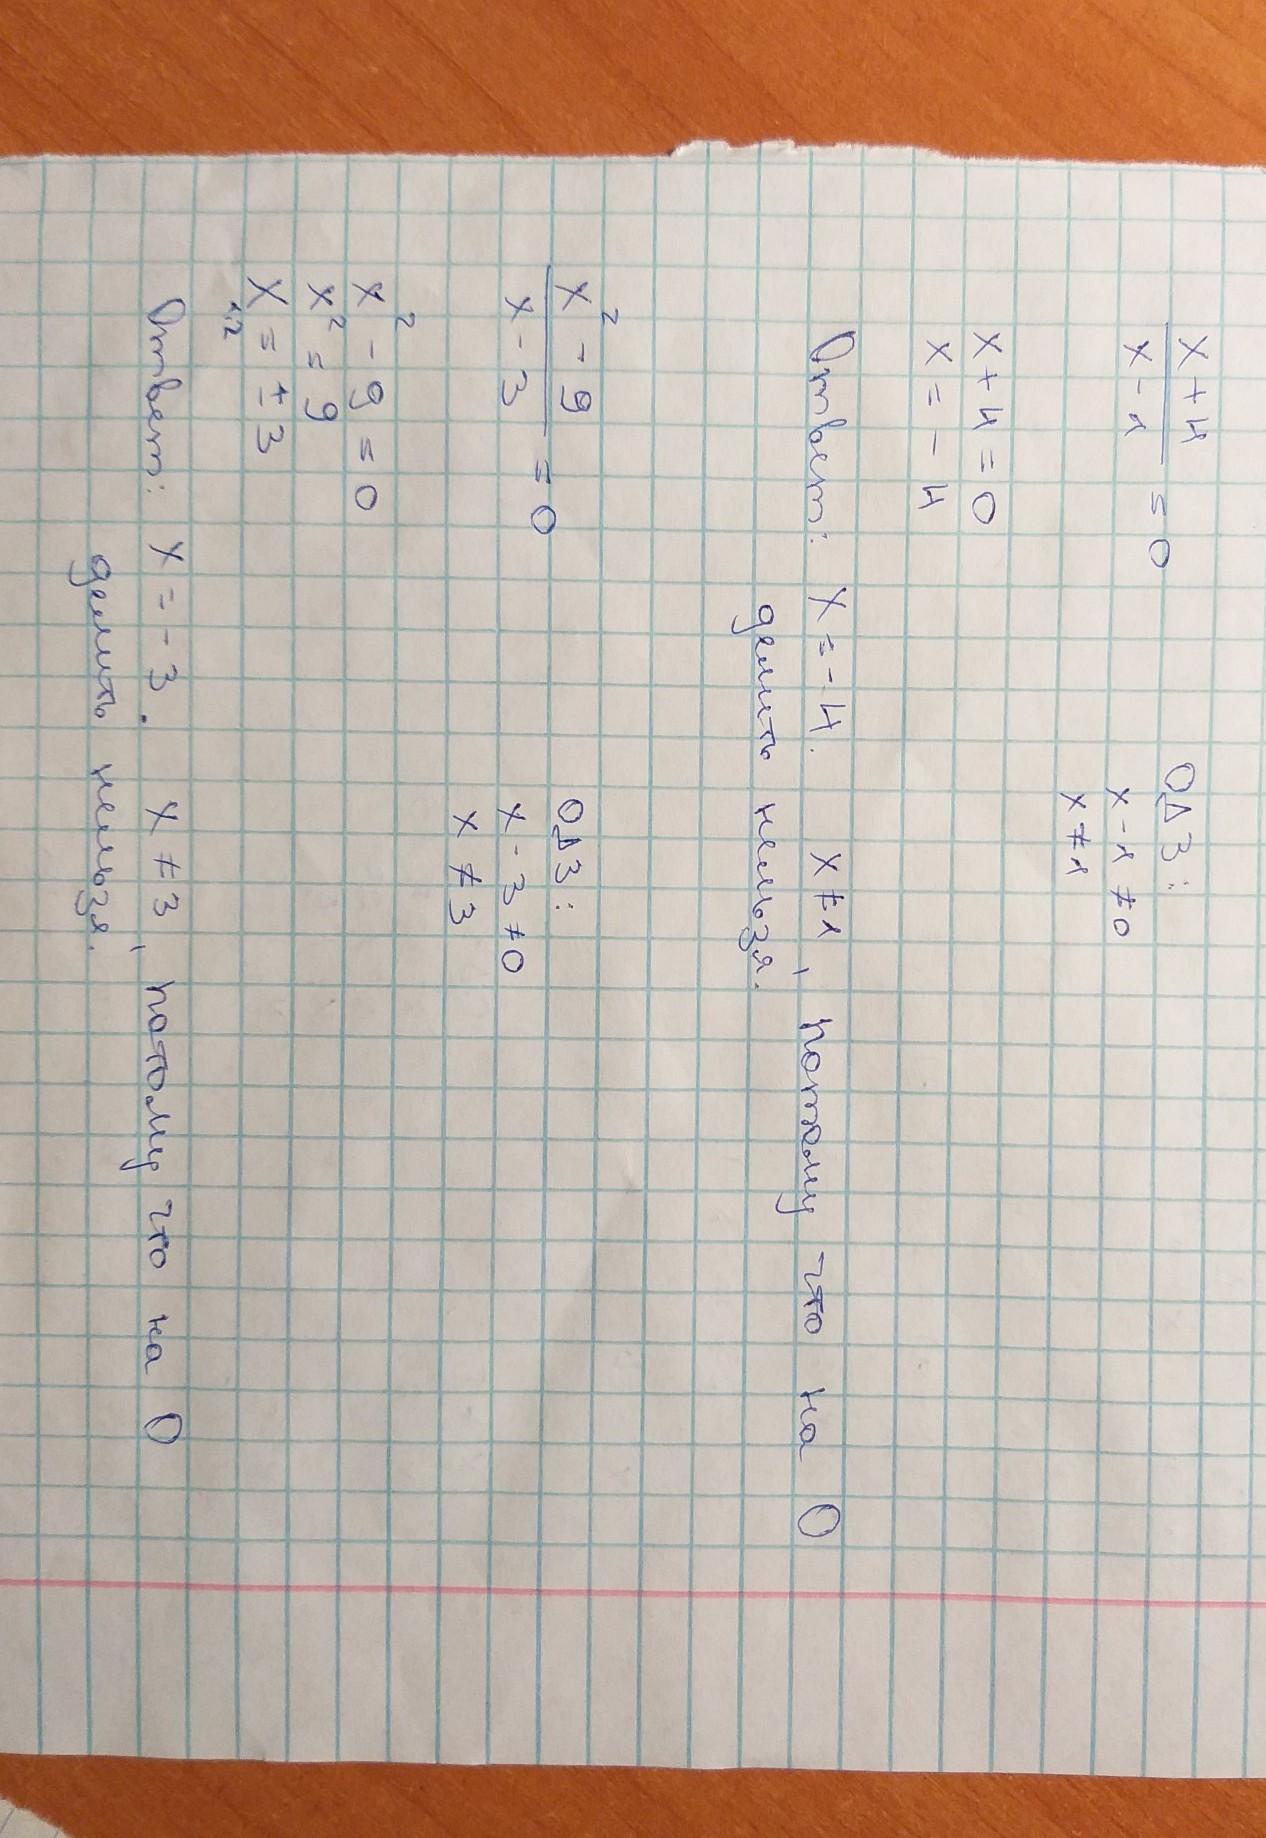 x+4
x-1 = 0
ОДЗ:
x-1≠0
x≠1
x+4=0
x=-4
Ответ: x=-4. x≠1, потому что на 0
делить нельзя.
x²-9
x-3 = 0
ОДЗ:
x-3≠0
x≠3
x²-9=0
x²=9
x₁,₂=±3
Ответ: x=-3. x≠3, потому что на 0
делить нельзя.